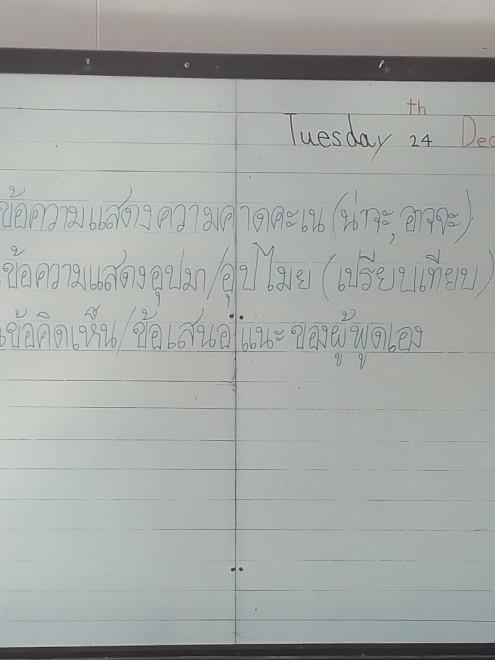 Tuesday 24th Dec
ข้อความแสดงความคาดคะเน (น่าจะ, อาจจะ)
ข้อความแสดงอุปมา/อุปไมย (เปรียบเทียบ)
ข้อคิดเห็น/ข้อเสนอแนะ ของผู้พูดเอง